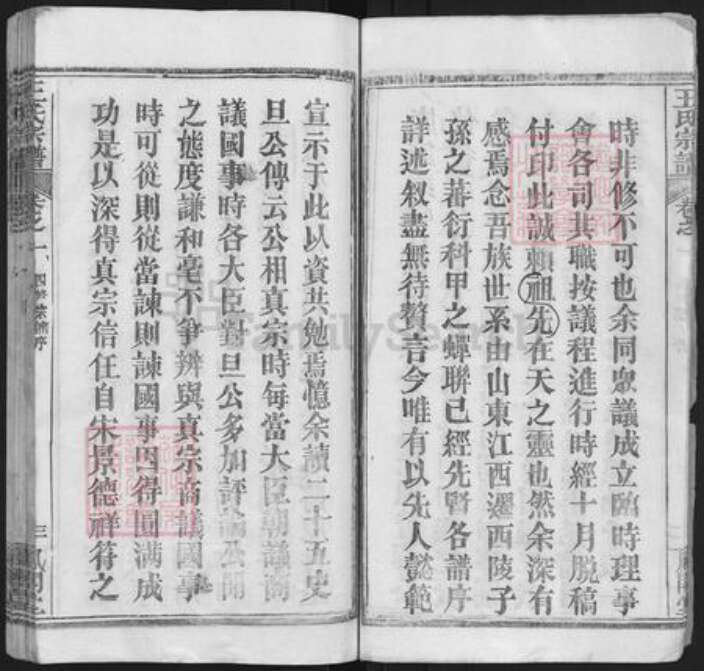 王氏宗譜 卷之一
時非修不可也余同眾議成立臨時理事
會各司其職按議程進行時經十月脫稿
付印此誠賴祖先在天之靈也然余深有
感焉念吾族世系由山東江西遷西陵子
孫之蕃衍科甲之蟬聯已經先賢各譜序
詳述叙盡無待贅言今唯有以先人懿範
宣示于此以資共勉焉憶余讀二十五史
旦公傳云公相真宗時每當大臣朝議商
議國事時各大臣對旦公多加評論公開
之態度謙和毫不爭辨與真宗商議國事
時可從則從當諫則諫國事因得圓满成
功是以深得真宗信任自宋景德祥符之
王氏宗譜 卷之一 四修宗譜序 三
FamilySearch